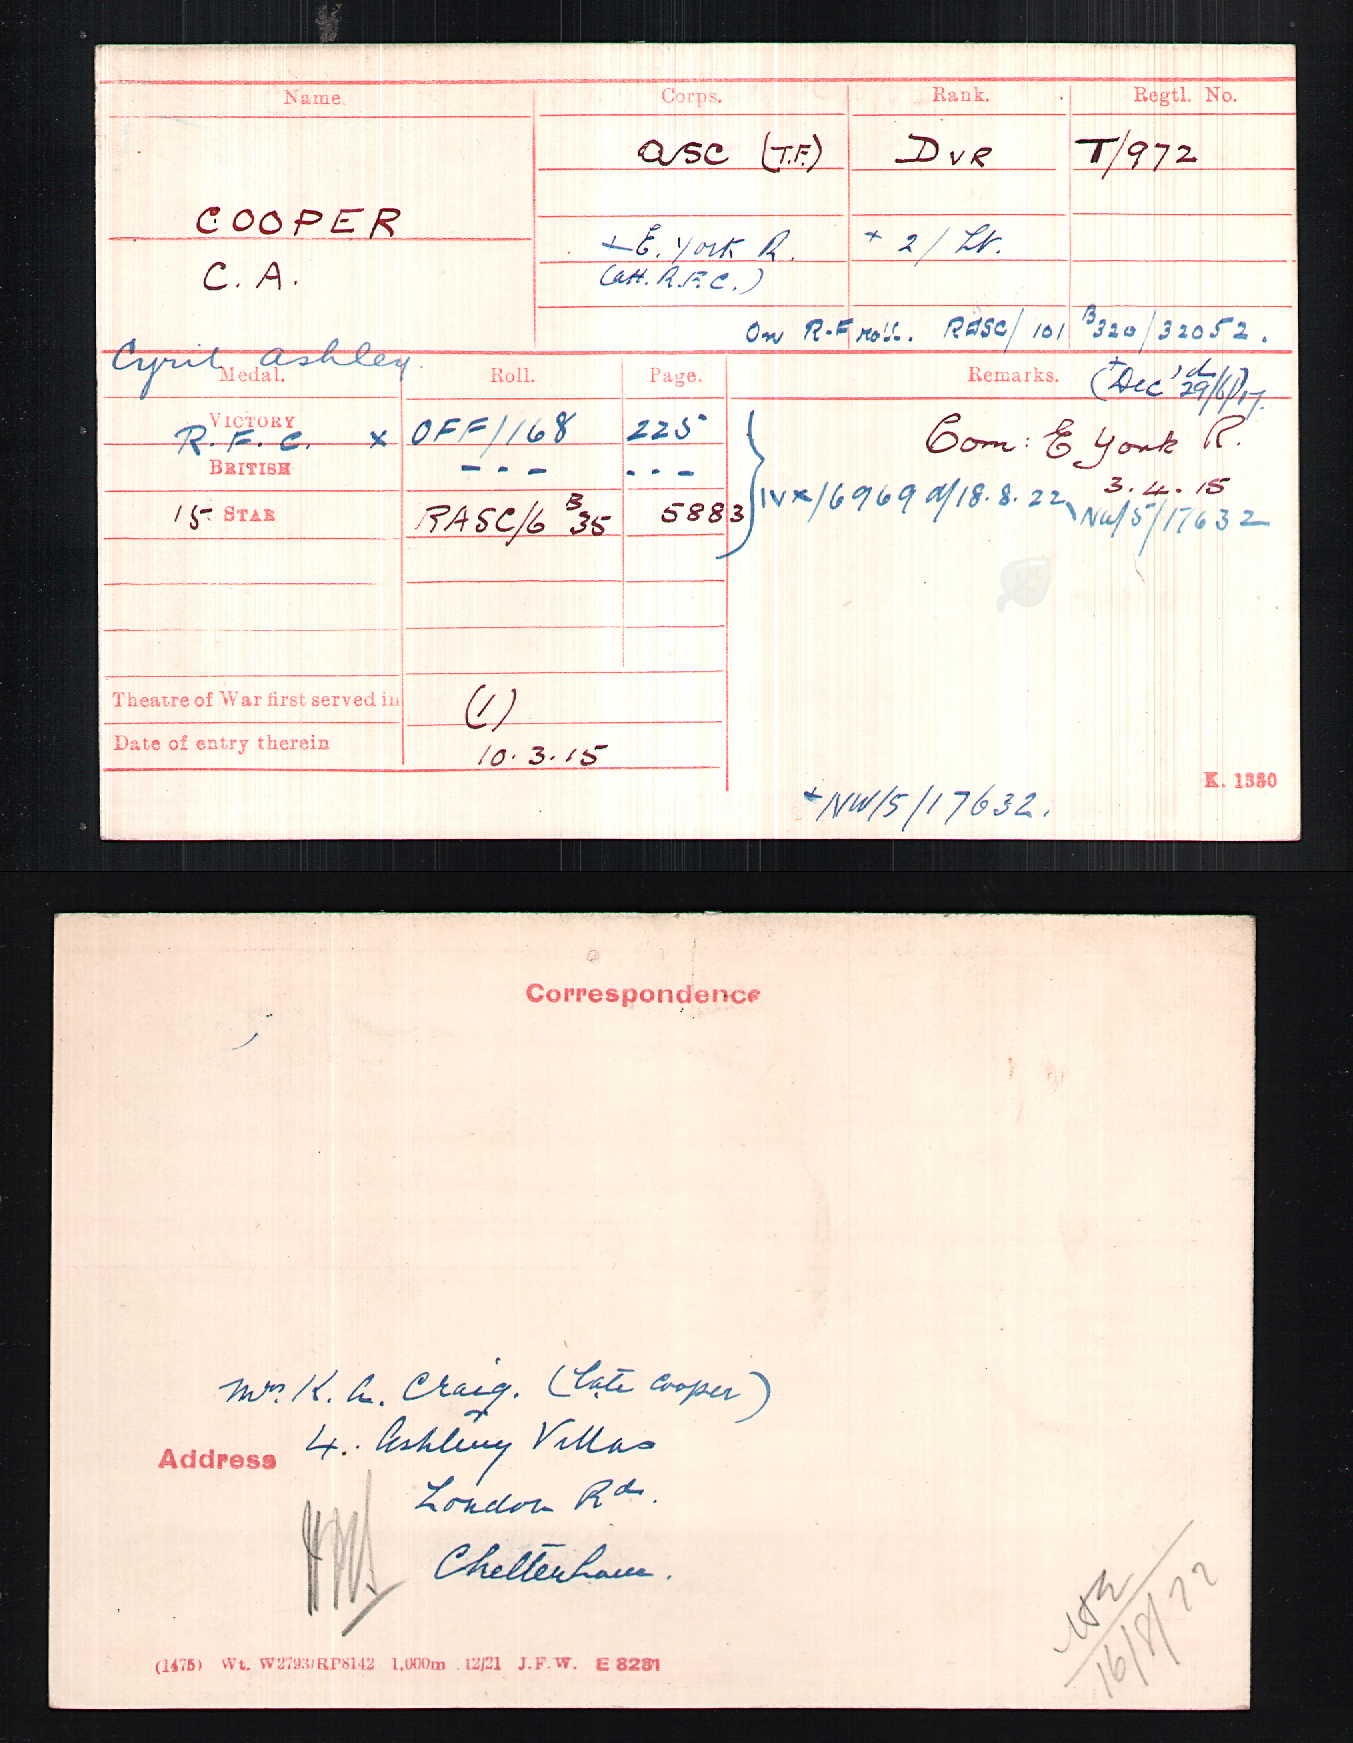 Name. Corps. Rank. Regtl. No.
ASC (T.F.) DVR T/972
COOPER
+ E. York R. + 2/Lt.
C. A. (att. R.F.C.)
On R.F roll. RASC/101 B320/32052.
Cyril Ashley.
Medal. Roll. Page. Remarks. (+Dec'd 29/6/17.)
VICTORY
R. F. C. x OFF/168 225 Com: E York R.
BRITISH - - - - - -
3.4.15
15 STAR RASC/6 B35 5883 IVX/6969 d/18.8.22 NW/5/17632
Theatre of War first served in (1)
Date of entry therein 10.3.15
K. 1380
+NW/5/17632.
Correspondence
Mrs. K. A. Craig. (late Cooper)
Address 4. Ashley Villas
London Rd.
Cheltenham.
16/8/22
(1475) Wt. W2793/RP8142 1,000m 12/21 J.F.W. E 8281